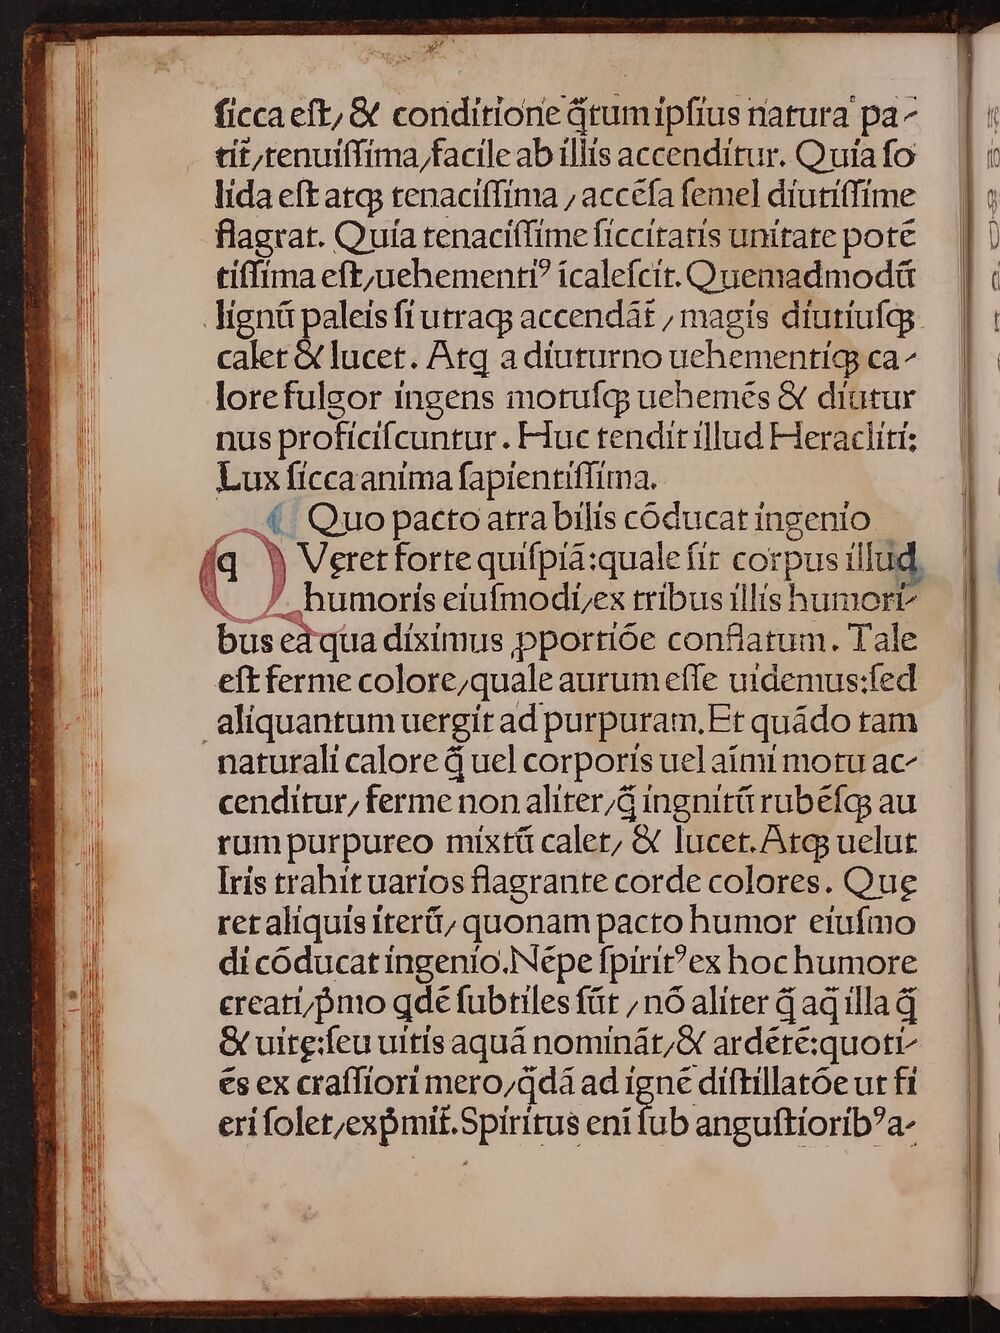 ſicca eſt, & conditione q̃tum ipſius natura pa-
tit̃, tenuiſſima, facile ab illis accenditur. Quia ſo
lida eſt atqꝫ tenaciſſima, accẽſa ſemel diutiſſime
flagrat. Quia tenaciſſime ſiccitatis unitate potẽ
tiſſima eſt, uehementiꝰ icaleſcit. Quemadmodũ
lignũ paleis ſi utraqꝫ accendãt̃, magis diutiuſqꝫ
calet & lucet. Atq a diuturno uehementiqꝫ ca-
lore fulgor ingens motuſqꝫ uehemẽs & diutur
nus proficiſcuntur. Huc tendit illud Heracliti:
Lux ſicca anima ſapientiſſima.
Quo pacto atra bilis cõducat ingenio
q Veret forte quiſpiã: quale ſit corpus illud
humoris eiuſmodi, ex tribus illis humori-
bus ea qua diximus ꝓportiõe conflatum. Tale
eſt ferme colore, quale aurum eſſe uidemus: ſed
aliquantum uergit ad purpuram. Et quãdo tam
naturali calore q̃ uel corporis uel aĩmi motu ac-
cenditur, ferme non aliter, q̃ ingnitũ rubẽſqꝫ au
rum purpureo mixtũ calet, & lucet. Atqꝫ uelut
Iris trahit uarios flagrante corde colores. Quę
ret aliquis iterũ, quonam pacto humor eiuſmo
di cõducat ingenio. Nẽpe ſpiritꝰ ex hoc humore
creati, p̃mo qdẽ ſubtiles ſũt, nõ aliter q̃ aq̃ illa q̃
& uitę: ſeu uitis aquã nominãt, & ardẽtẽ: quoti-
ẽs ex craſſiori mero, q̃dã ad ignẽ diſtillatõe ut fi
eri ſolet, exp̃mit̃. Spiritus enĩ ſub anguſtioribꝰ a-